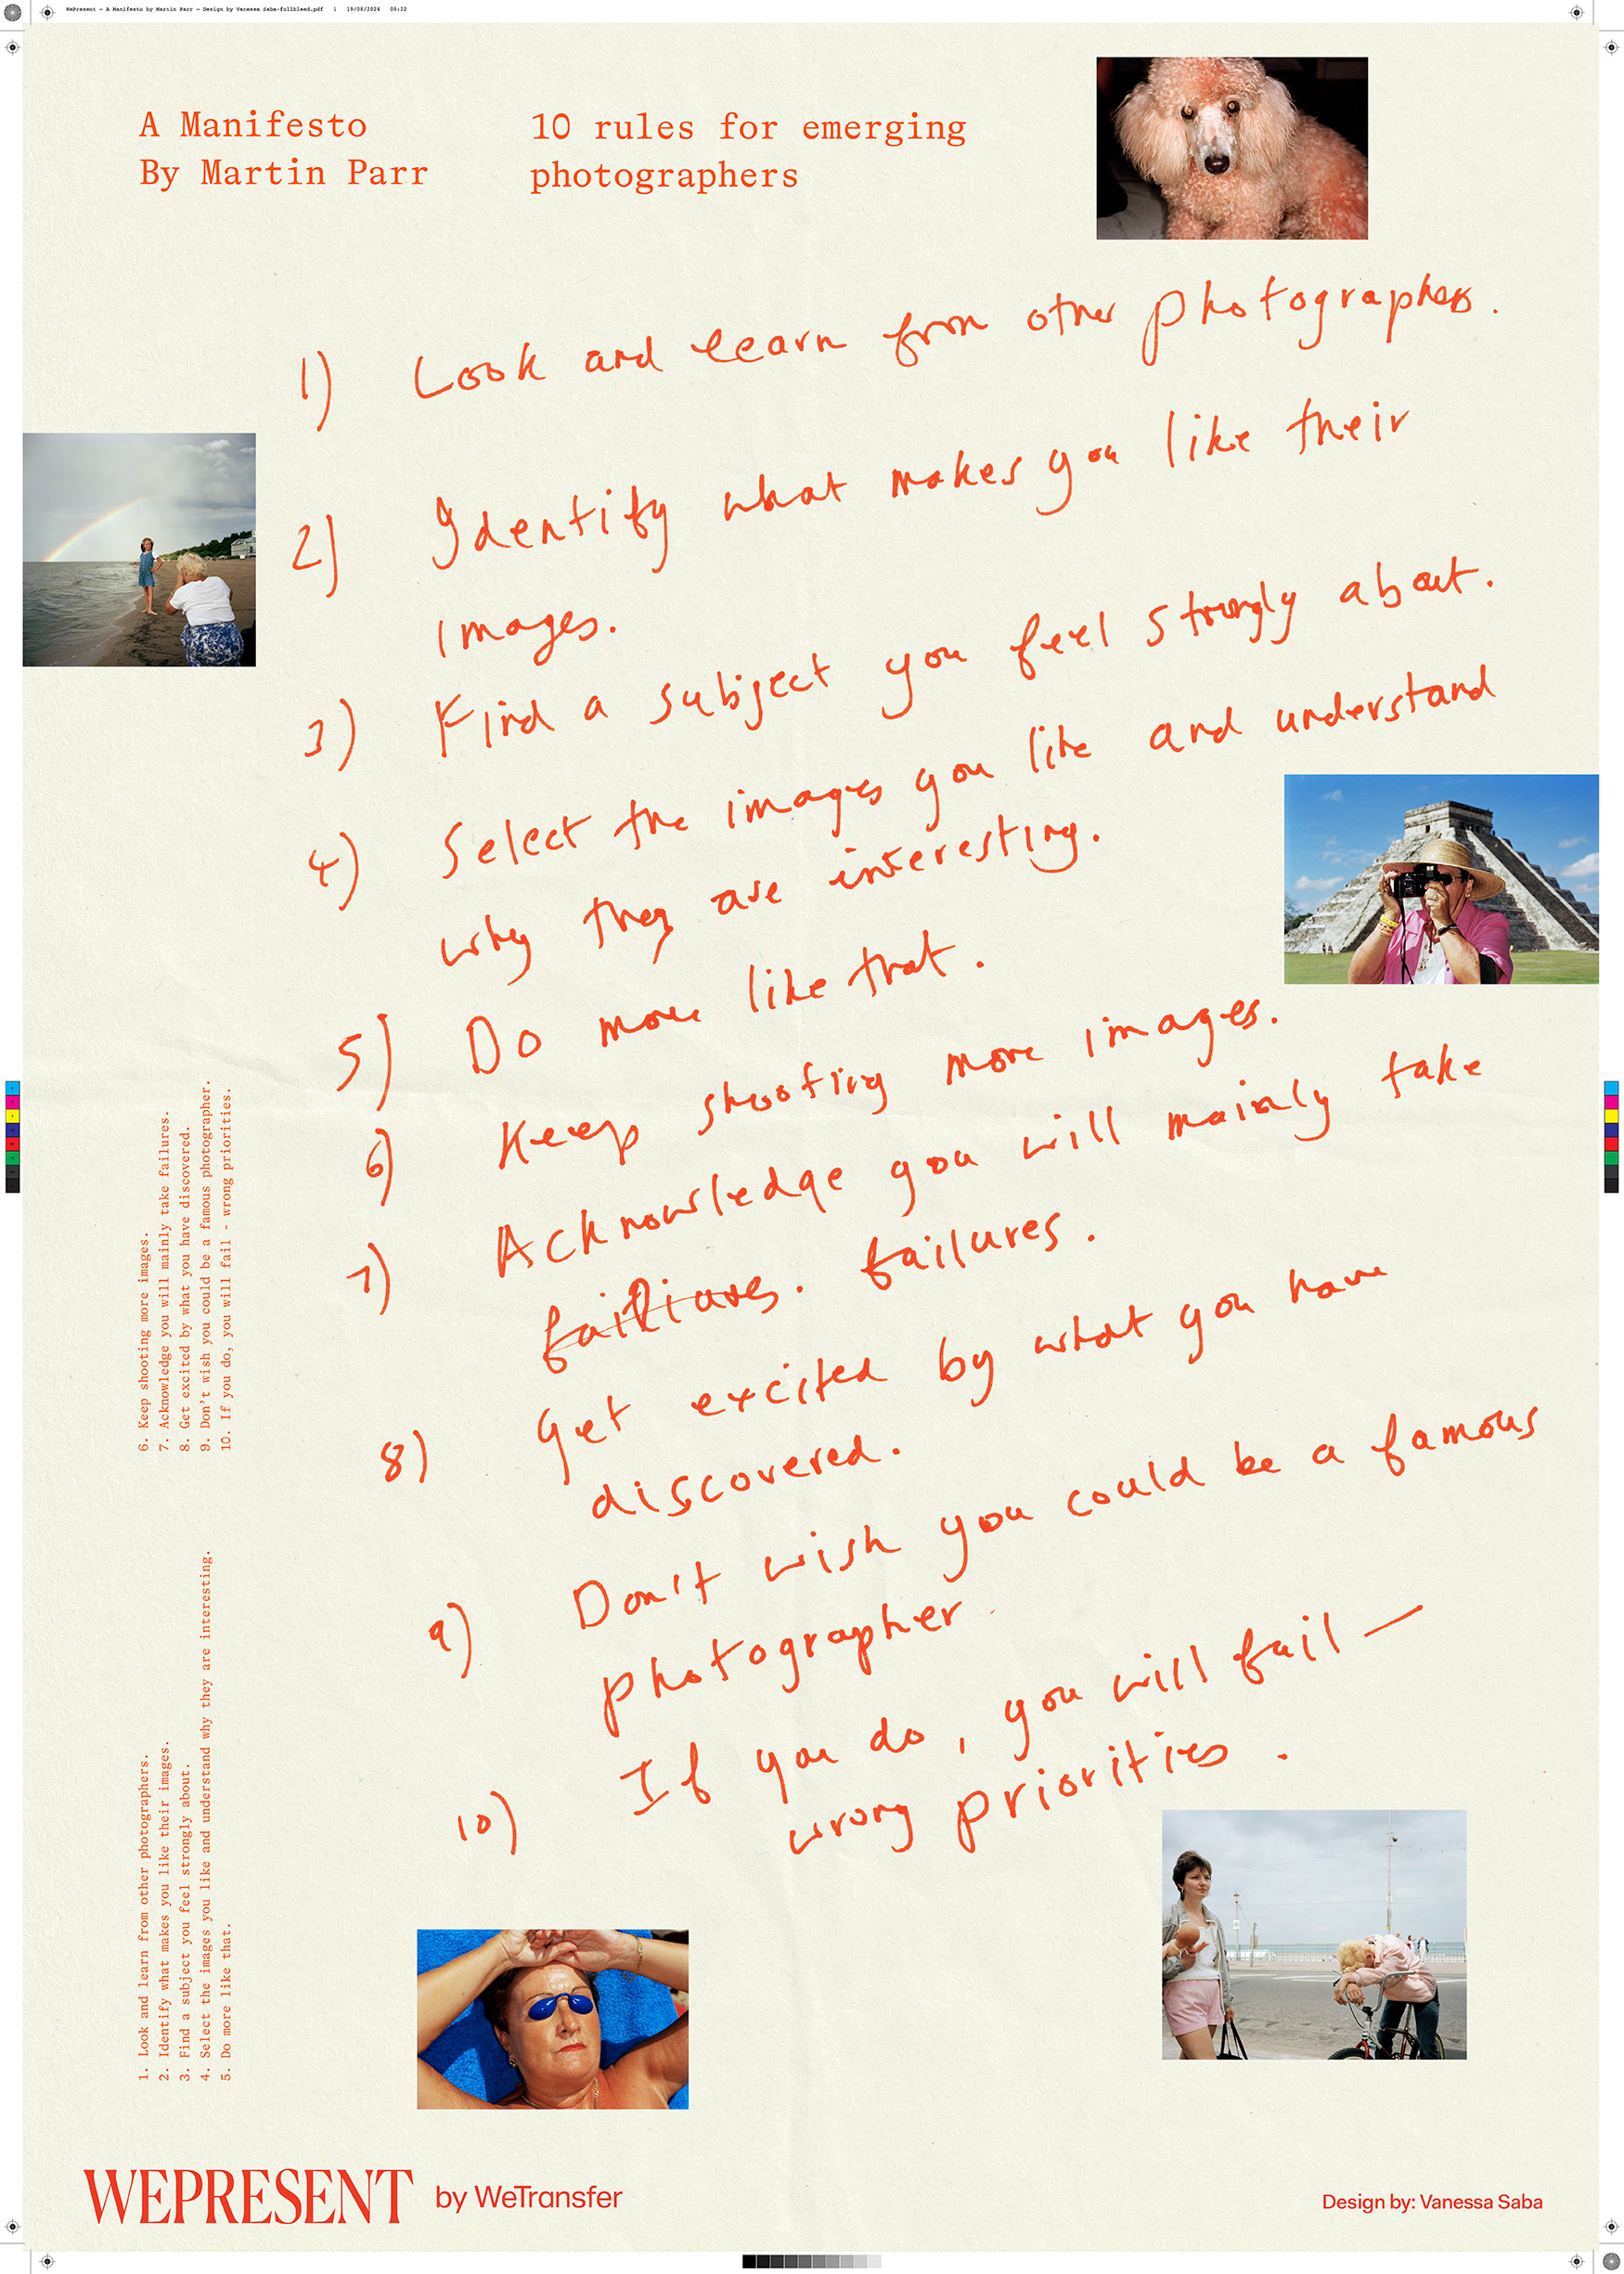 WePresent — A Manifesto by Martin Parr — Design by Vanessa Saba-fullbleed.pdf 1 19/08/2024 09:22
A Manifesto
By Martin Parr
10 rules for emerging
photographers
1) Look and learn from other photographers.
2) Identify what makes you like their
images.
3) Find a subject you feel strongly about.
4) Select the images you like and understand
why they are interesting.
5) Do more like that.
6) Keep shooting more images.
7) Acknowledge you will mainly take
failures.
8) Get excited by what you have
discovered.
9) Don't wish you could be a famous
photographer.
10) If you do, you will fail —
wrong priorities.
1. Look and learn from other photographers.
2. Identify what makes you like their images.
3. Find a subject you feel strongly about.
4. Select the images you like and understand why they are interesting.
5. Do more like that.
6. Keep shooting more images.
7. Acknowledge you will mainly take failures.
8. Get excited by what you have discovered.
9. Don't wish you could be a famous photographer.
10. If you do, you will fail - wrong priorities.
WEPRESENT by WeTransfer
Design by: Vanessa Saba